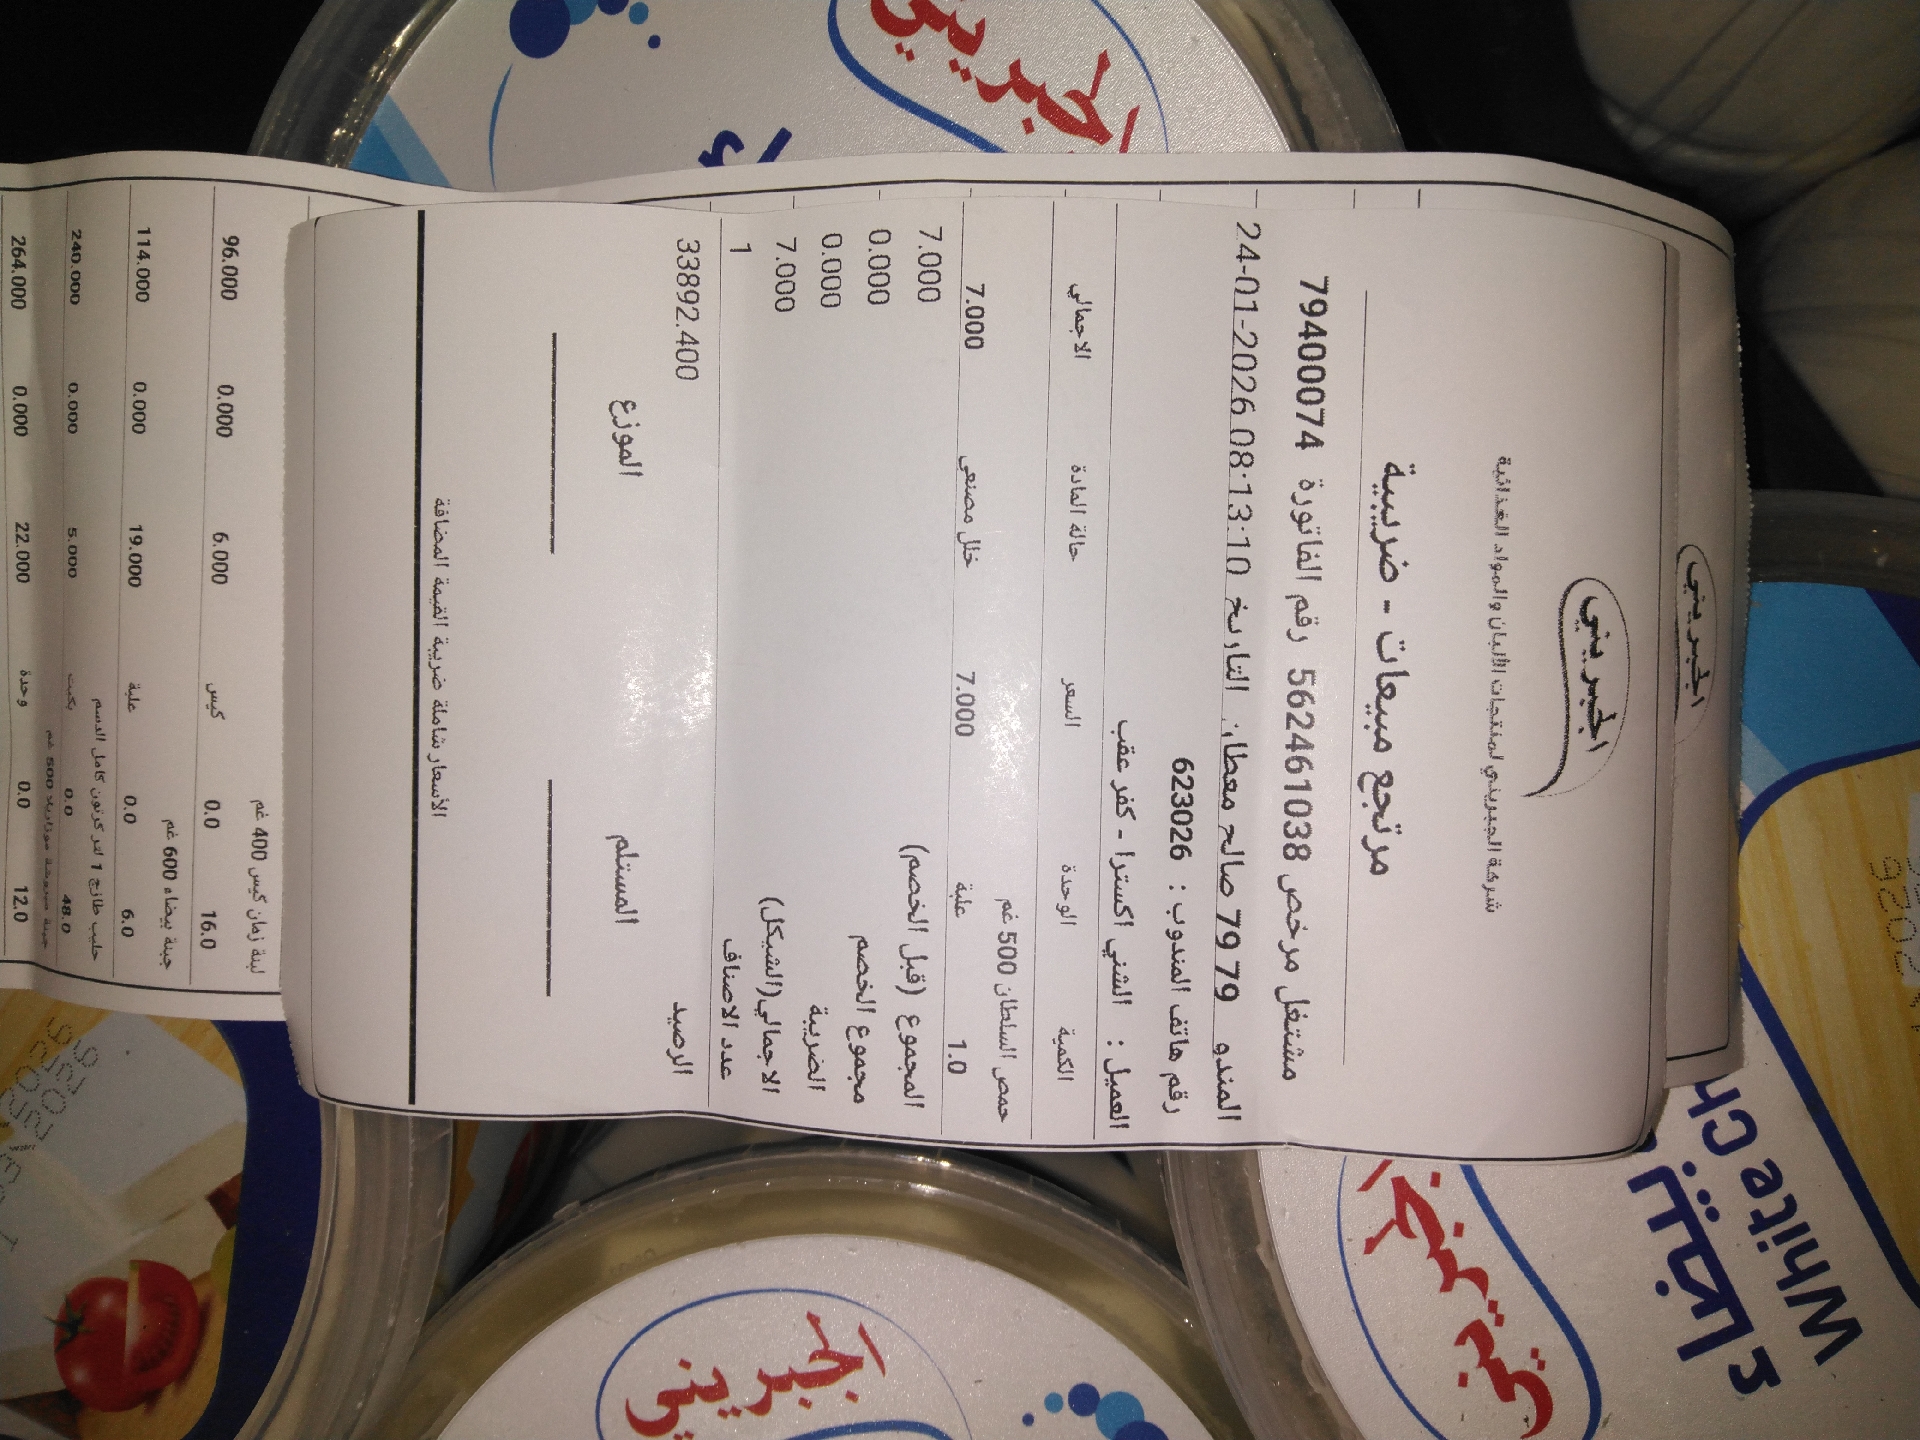 الجبريني
الجبريني
شركة الجبريني لمنتجات الألبان والمواد الغذائية
مرتجع مبيعات - ضريبية
مشتغل مرخص 562461038 رقم الفاتورة 79400074
المندو 79 79 صالح معطان: التاريخ 24-01-2026 08:13:10
رقم هاتف المندوب : 623026
العميل : الشني اكسترا - كفر عقب
الكمية الوحدة السعر حالة المادة الاجمالي
حمص السلطان 500 غم
1.0 علبة 7.000 خلل مصنعي 7.000
المجموع (قبل الخصم) 7.000
مجموع الخصم 0.000
الضريبة 0.000
الاجمالي(الشيكل) 7.000
عدد الاصناف 1
الرصيد 33892.400
المستلم الموزع
الأسعار شاملة ضريبة القيمة المضافة
لبنة زمان كيس 400 غم
16.0 0.0 كيس 6.000 0.000 96.000
جبنة بيضاء 600 غم
6.0 0.0 علبة 19.000 0.000 114.000
حليب طازج 1 لتر كرتون كامل الدسم
48.0 0.0 بكيت 5.000 0.000 240.000
500 غم
12.0 0.0 وحدة 22.000 0.000 264.000
الجبريني
الجبريني
الجبريني
بيضاء
White Ch